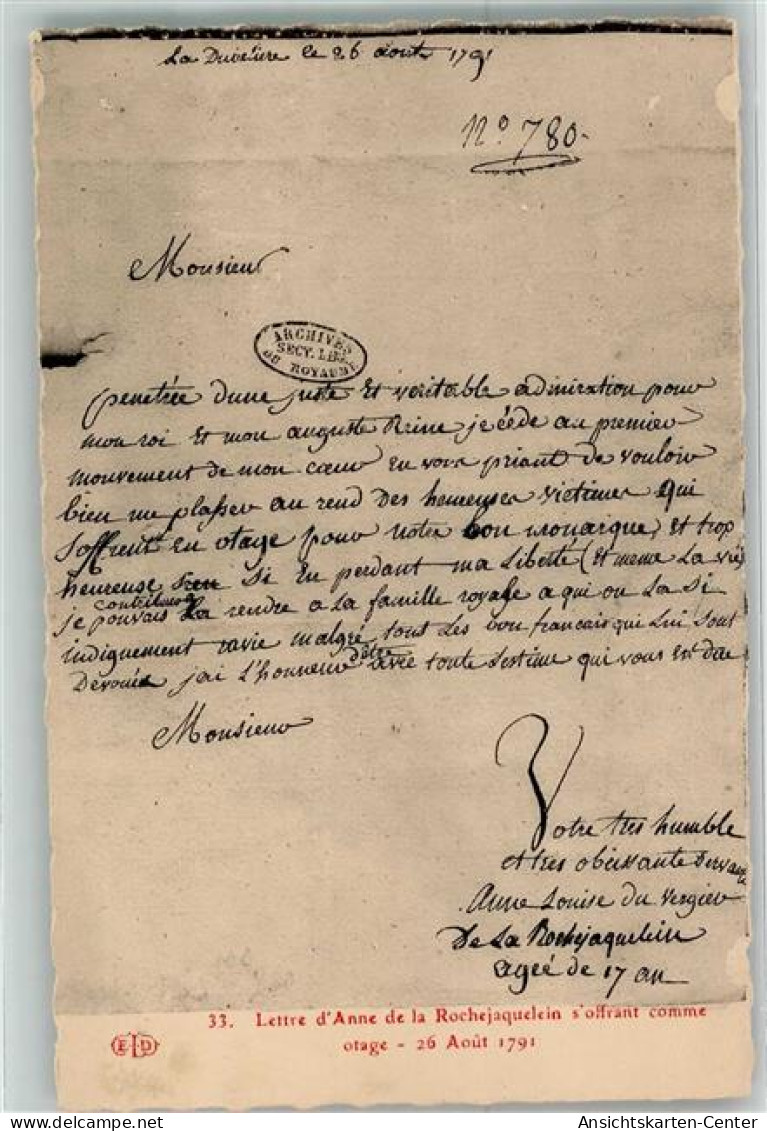 La Duvetiere le 26 aout 1791
No. 780.
Monsieur
ARCHIVES
SECT. LEG.
DU ROYAUME
penetrée dune juste et veritable admiration pour
mon roi et mon auguste Reine je cède au premier
mouvement de mon cœur en vous priant de vouloir
bien me plasser au rend des heureuses victimes qui
soffrent en otage pour notre bon monarque, et trop
heureuse si en perdant ma Liberté (et meme La vie)
je pouvais contribuer a La rendre a La famille royale a qui on La si
indignement ravie malgré tous Les bon francais qui Lui sont
Devoués jai L'honneur d'etre avec toute Lestime qui vous est due
Monsieur
Votre tres humble
et tres obeissante servante
Anne Louise du vergier
De La Rochejaquelein
ageé de 17 an
33. Lettre d'Anne de la Rochejaquelein s'offrant comme
otage - 26 Août 1791
ELD
Ansichtskarten-Center